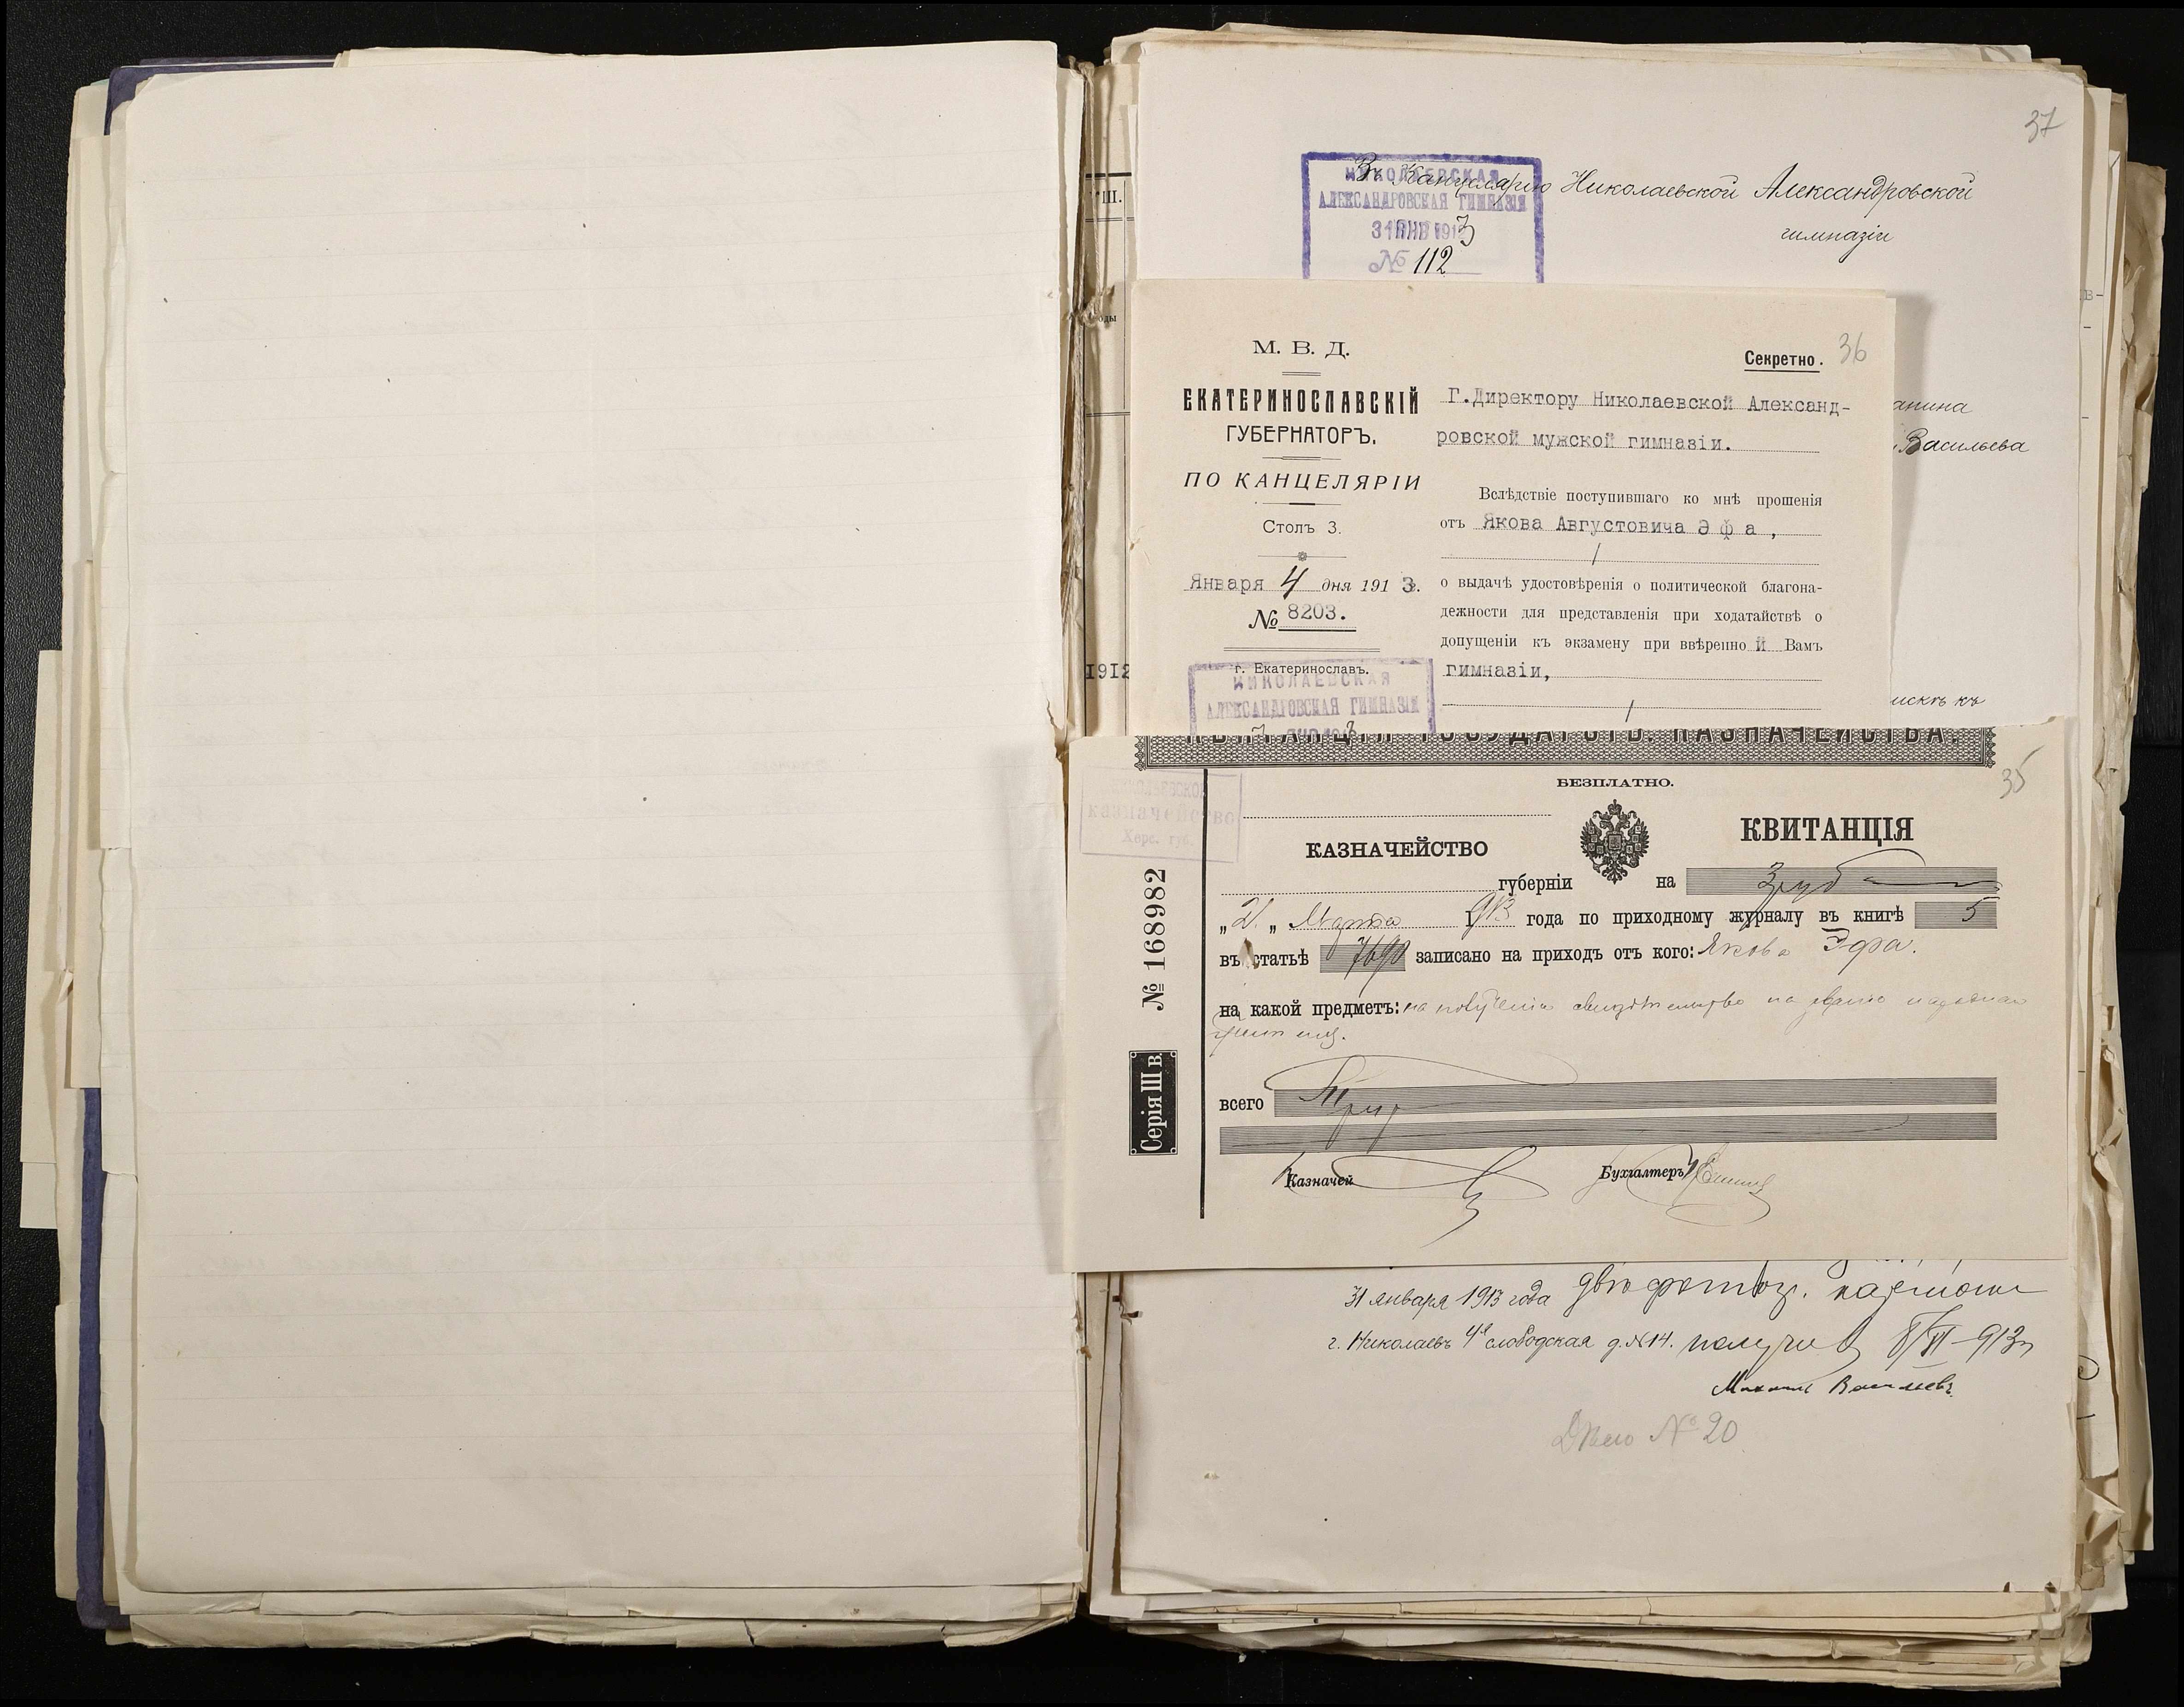 37
Въ Канцелярію Николаевской Александровской
гимназіи
НИКОЛАЕВСКАЯ
АЛЕКСАНДРОВСКАЯ ГИМНАЗІЯ
31 ЯНВ 1913
№ 112
VIII.
анина
Васильева
искъ къ
1912
36
М. В. Д.
Секретно.
ЕКАТЕРИНОСЛАВСКІЙ
ГУБЕРНАТОРЪ.
ПО КАНЦЕЛЯРІИ
Столъ 3.
Января 4 дня 1913.
№ 8203.
г. Екатеринославъ.
НИКОЛАЕВСКАЯ
АЛЕКСАНДРОВСКАЯ ГИМНАЗІЯ
Г.Директору Николаевской Александ-
ровской мужской гимназіи.
Вслѣдствіе поступившаго ко мнѣ прошенія
отъ Якова Августовича Э ф а ,
о выдачѣ удостовѣренія о политической благона-
дежности для представленія при ходатайствѣ о
допущеніи къ экзамену при ввѣренно й Вамъ
гимназіи,
КВИТАНЦІЯ ГОСУДАРСТВ. КАЗНАЧЕЙСТВА.
35
БЕЗПЛАТНО.
казначейство
Херс. губ.
КАЗНАЧЕЙСТВО
КВИТАНЦІЯ
губерніи на 3 руб
„21„ Марта 1913 года по приходному журналу въ книгѣ 5
въ статьѣ 7690 записано на приходъ отъ кого: Якова Эфа.
на какой предметъ: на полученіе свидѣтельства на званіе
всего Три
Казначей
Бухгалтеръ
№ 168982
Серія Ш в.
31 января 1913 года двѣ фотогр. карточки
г. Николаевъ 4я слободская д. №14. получил 8/VI-913г
Михаилъ Васильевъ.
Дѣло № 20